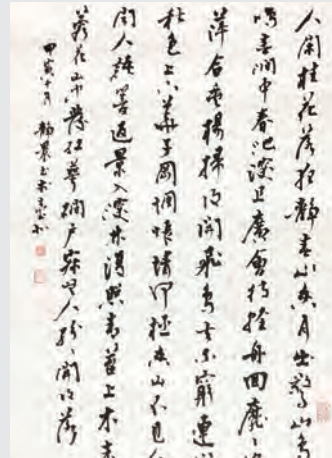 人閒桂花落夜靜春山空月出驚山鳥
鳴春澗中春池深且廣會待輕舟回靡々
萍合垂楊掃復開飛鳥去不窮連
秋色上下華子岡惆悵情何極空山不見人
聞人語響返景入深林復照青苔上木末
蓉花山中發紅萼澗戶寂無人紛々開且落
甲寅十月 靜農書